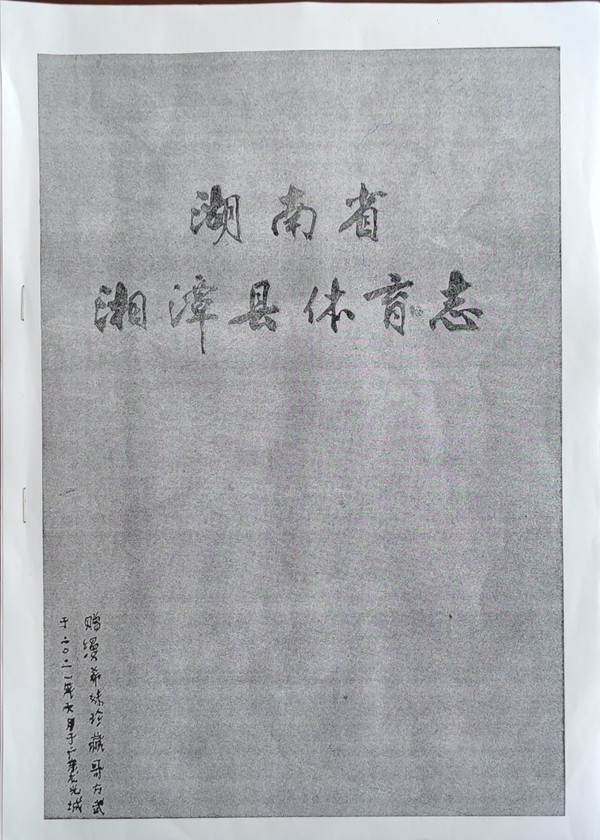 湖南省
湘潭县体育志
赠漫萍妹珍藏哥方武
于二〇二一年六月于广东龙光城